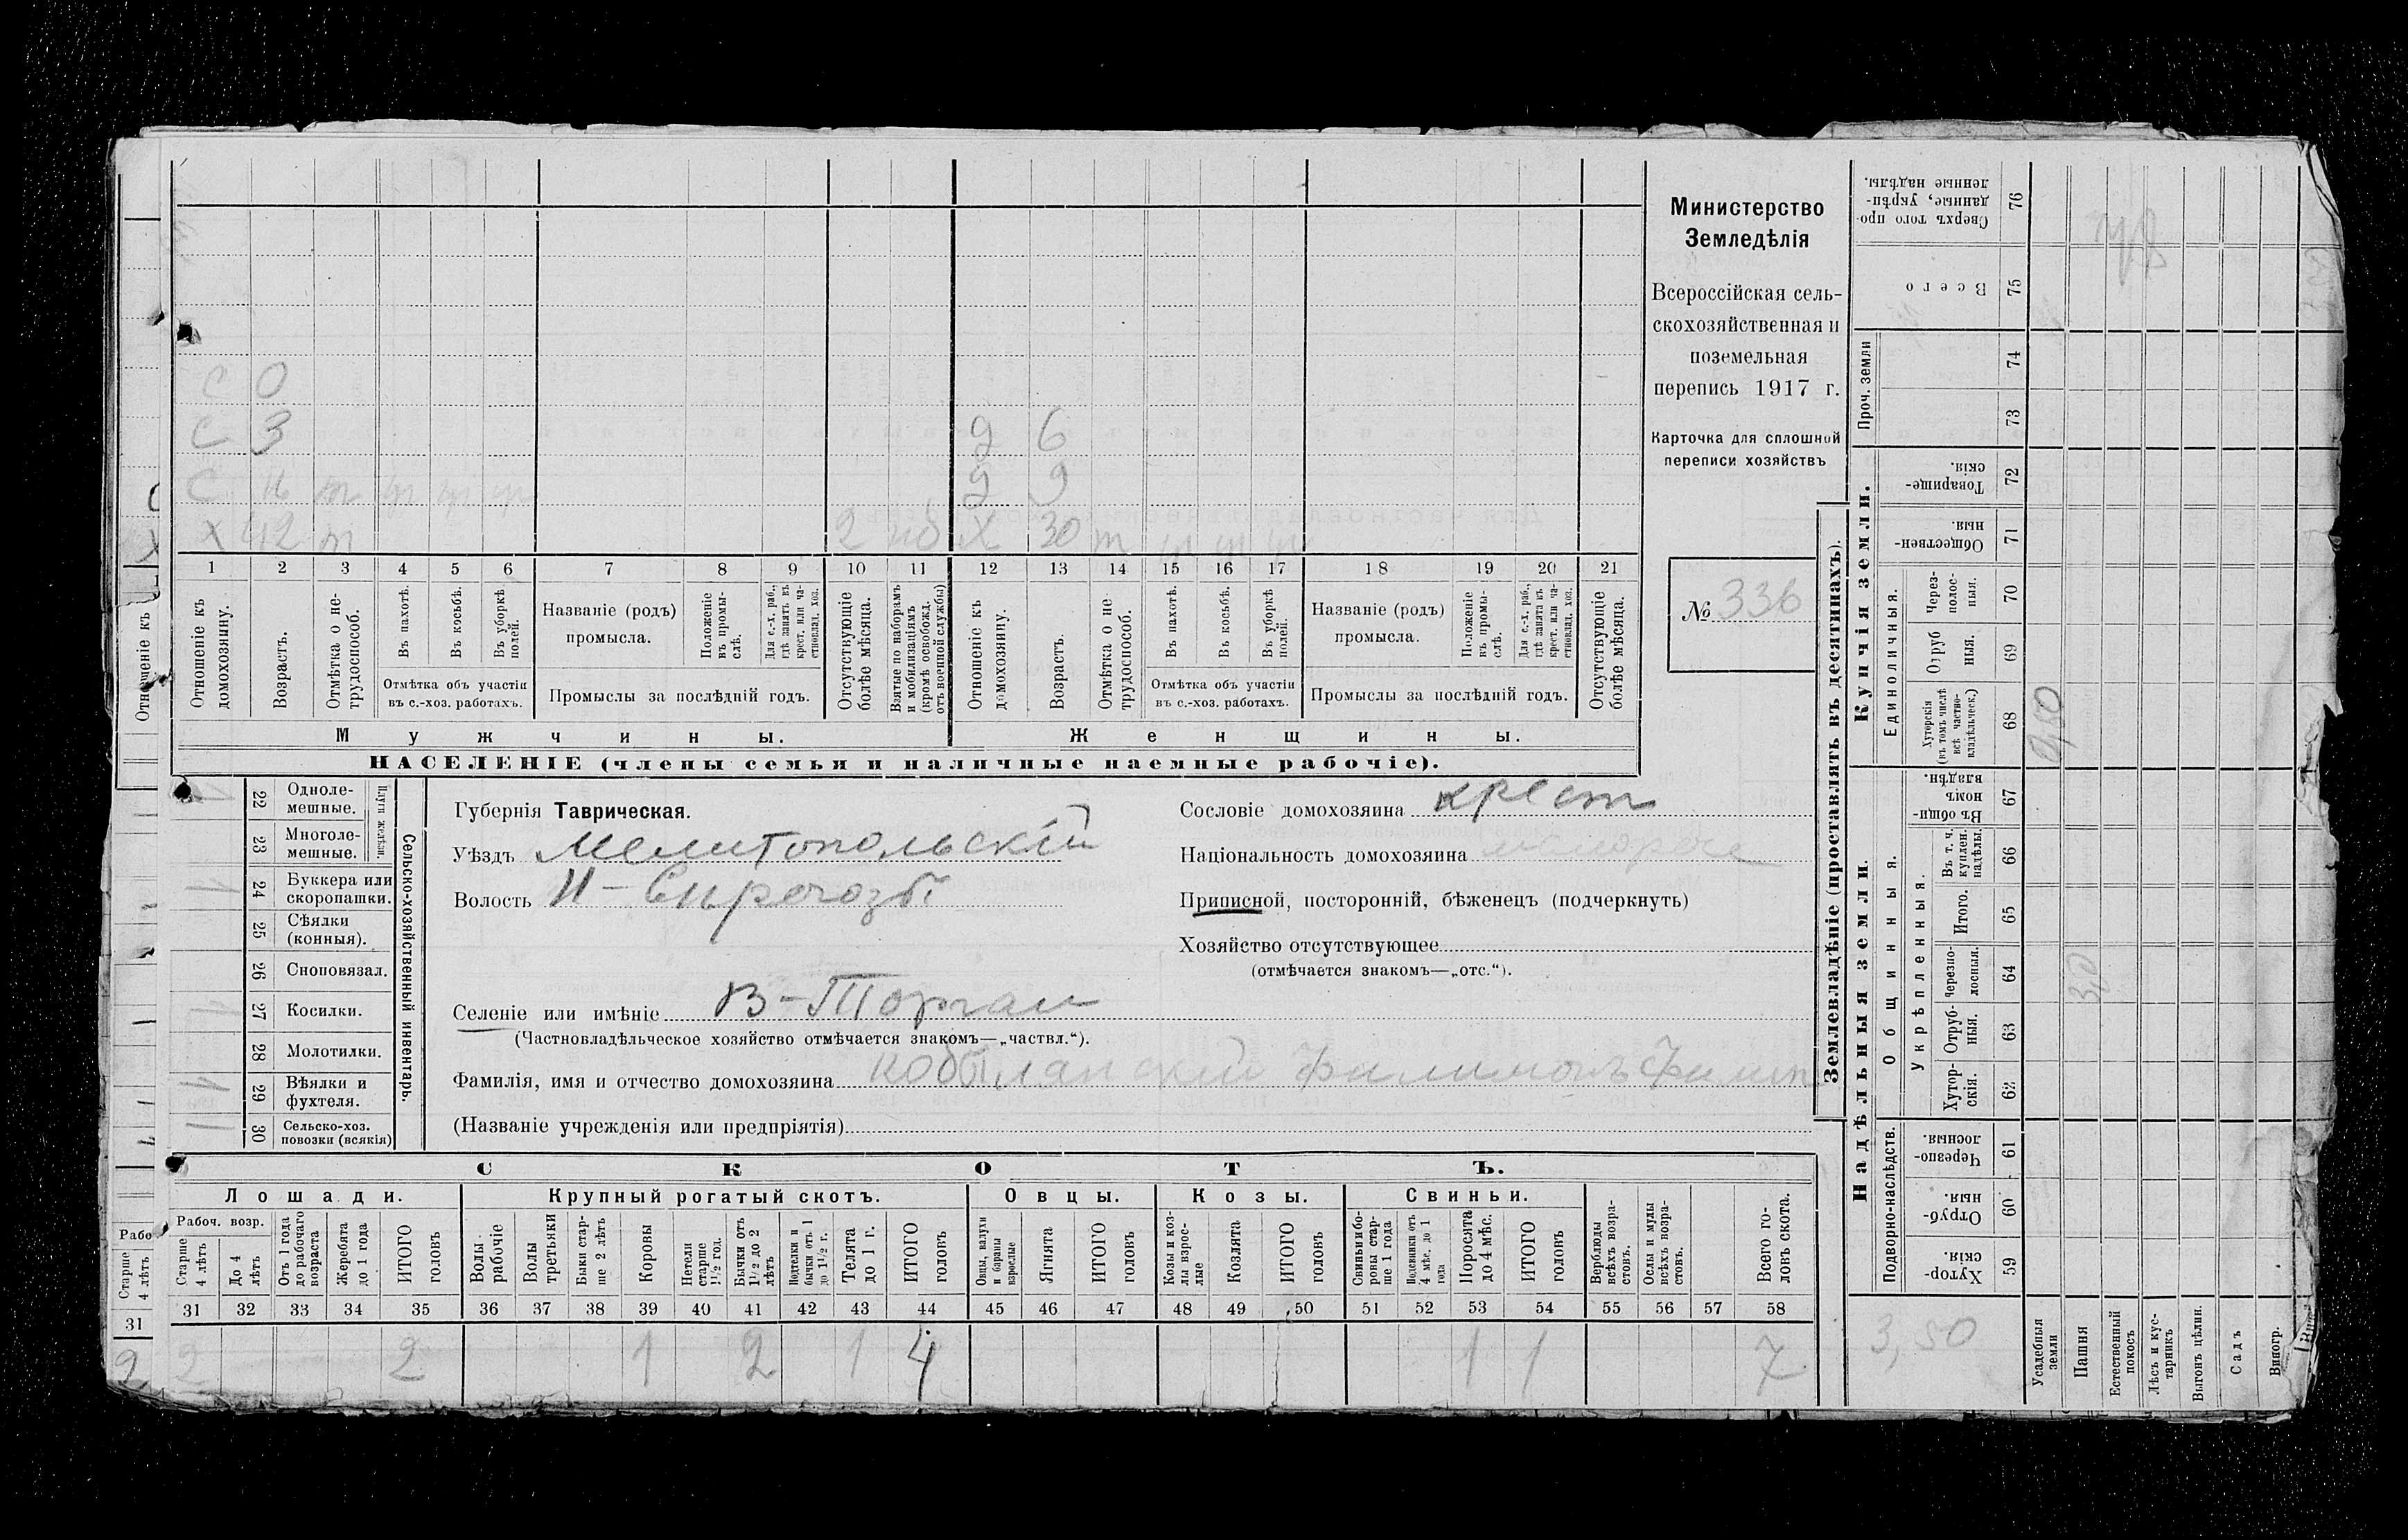 Министерство
Земледѣлія
Всероссійская сель-
скохозяйственная и
поземельная
перепись 1917 г.
Карточка для сплошной
переписи хозяйствъ
№ 336
С 0
С 3 9 6
С 9 9
Х 42 т 2 Х 30 т
1 2 3 4 5 6 7 8 9 10 11 12 13 14 15 16 17 18 19 20 21
Отношеніе къ домохозяину.
Возрастъ.
Отмѣтка о не-трудоспособ.
Въ пахотѣ.
Въ косьбѣ.
Въ уборкѣ полей.
Отмѣтка объ участіи
въ с.-хоз. работахъ.
Названіе (родъ)
промысла.
Положеніе въ промы-слѣ.
Для с.-х. раб., гдѣ занятъ въ крест. или ча-стновлад. хоз.
Промыслы за послѣдній годъ.
Отсутствующіе болѣе мѣсяца.
Взятые по наборамъ и мобилизаціямъ (кромѣ освобожд. отъ военной службы)
Отношеніе къ домохозяину.
Возрастъ.
Отмѣтка о не-трудоспособ.
Въ пахотѣ.
Въ косьбѣ.
Въ уборкѣ полей.
Отмѣтка объ участіи
въ с.-хоз. работахъ.
Названіе (родъ)
промысла.
Положеніе въ промы-слѣ.
Для с.-х. раб., гдѣ занята въ крест. или ча-стновлад. хоз.
Промыслы за послѣдній годъ.
Отсутствующіе болѣе мѣсяца.
Мужчины. Женщины.
НАСЕЛЕНІЕ (члены семьи и наличные наемные рабочіе).
Отношеніе къ
Сельско-хозяйственный инвентарь.
Плуги желѣзн.
22 Одноле-мешные.
23 Многоле-мешные.
24 Буккера или скоропашки.
25 Сѣялки (конныя).
26 Сноповязал.
27 Косилки.
28 Молотилки.
29 Вѣялки и фухтеля.
30 Сельско-хоз. повозки (всякія)
Губернія Таврическая.
Уѣздъ Мелитопольскій
Волость Н-Сирогозы
Селеніе или имѣніе В-Торгаи
(Частновладѣльческое хозяйство отмѣчается знакомъ—„частвл.“).
Фамилія, имя и отчество домохозяина Кобылянскій Филимонъ Филип
(Названіе учрежденія или предпріятія)
Сословіе домохозяина крест
Національность домохозяина малоросс
Приписной, посторонній, бѣженецъ (подчеркнуть)
Хозяйство отсутствующее
(отмѣчается знакомъ—„отс.“).
СКОТЪ.
Лошади. Крупный рогатый скотъ. Овцы. Козы. Свиньи.
Рабоч. возр.
Старше 4 лѣтъ
До 4 лѣтъ
Отъ 1 года до рабочаго возраста
Жеребята до 1 года
ИТОГО головъ
Волы рабочіе
Волы третьяки
Быки стар-ше 2 лѣтъ
Коровы
Нетели старше 1½ год.
Бычки отъ 1½ до 2 лѣтъ
Подтелки и бычки отъ 1 до 1½ г.
Телята до 1 г.
ИТОГО головъ
Овцы, валухи и бараны взрослые
Ягнята
ИТОГО головъ
Козы и коз-лы взрос-лые
Козлята
ИТОГО головъ
Свиньи и бо-ровы стар-ше 1 года
Подсвинки отъ 4 мѣс. до 1 года
Поросята до 4 мѣс.
ИТОГО головъ
Верблюды всѣхъ возра-стовъ.
Ослы и мулы всѣхъ возра-стовъ.
Всего го-ловъ скота.
31 32 33 34 35 36 37 38 39 40 41 42 43 44 45 46 47 48 49 50 51 52 53 54 55 56 57 58
2 2 1 2 1 4 1 1 7
Рабо
Старше 4 лѣтъ
31
2
Землевладѣніе (проставлять въ десятинахъ).
Купчія земли.
Надѣльныя земли.
Сверхъ того про-данные, укрѣп-ленные надѣлы. 76
Всего 75
Проч. земли 74 73
Товарище-скія. 72
Обществен-ныя. 71
Единоличныя.
Через-полос-ныя. 70
Отруб ныя. 69
Хуторскія (въ томъ числѣ всѣ частно-владѣльческ.) 68
9,50
Общинныя.
Въ общин-номъ владѣн. 67
Укрѣпленныя.
Въ т. ч. куплен. надѣлы. 66
Итого. 65
Черезпо-лосныя. 64
3,0
Отруб-ныя. 63
Хутор-скія. 62
Подворно-наслѣдств.
Черезпо-лосныя. 61
Отруб-ныя. 60
Хутор-скія. 59
3,50
Усадебныя земли
Пашня
Естественный покосъ
Лѣсъ и кус-тарникъ
Выгонъ цѣлин.
Садъ
Виногр.